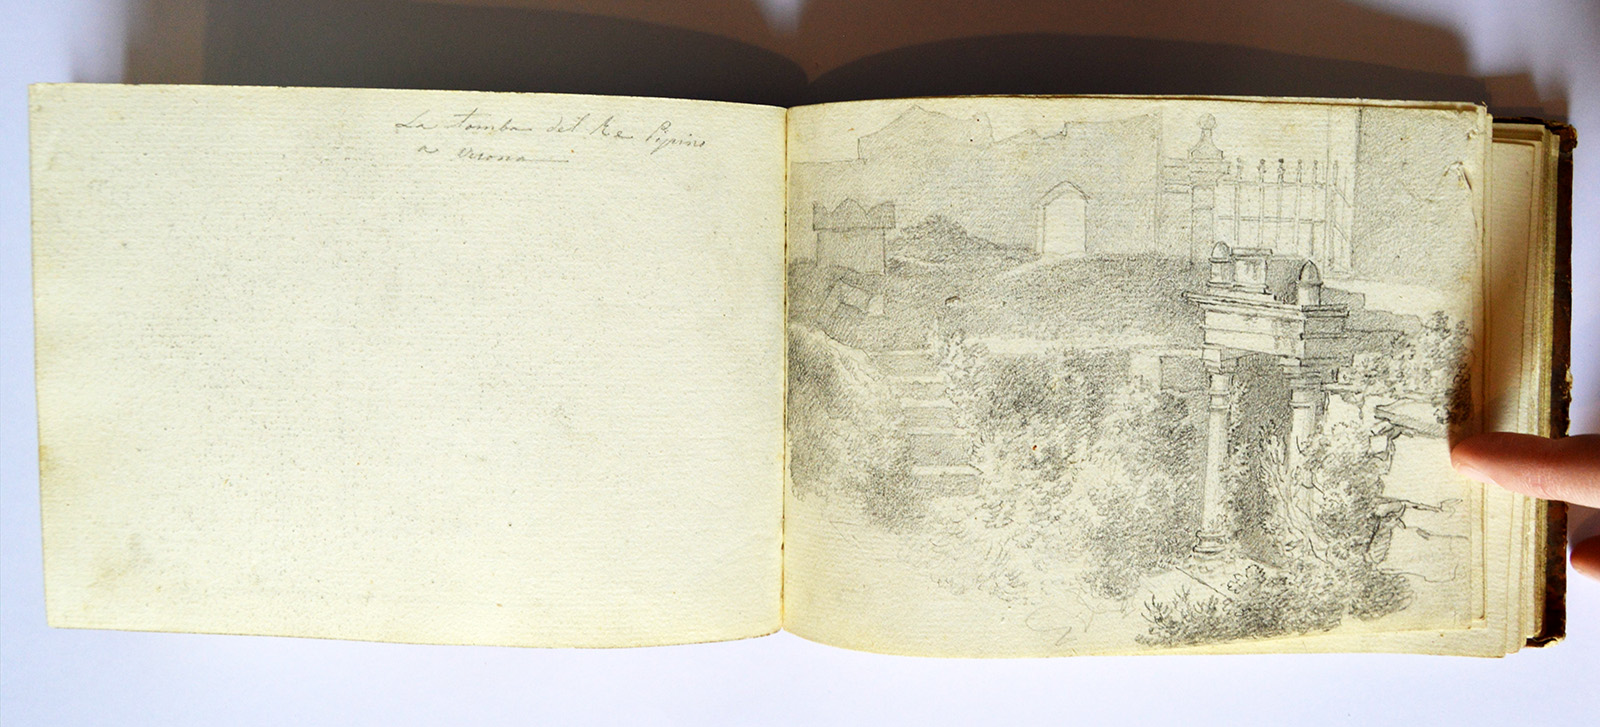 La tomba del Re Pipino
a Verona